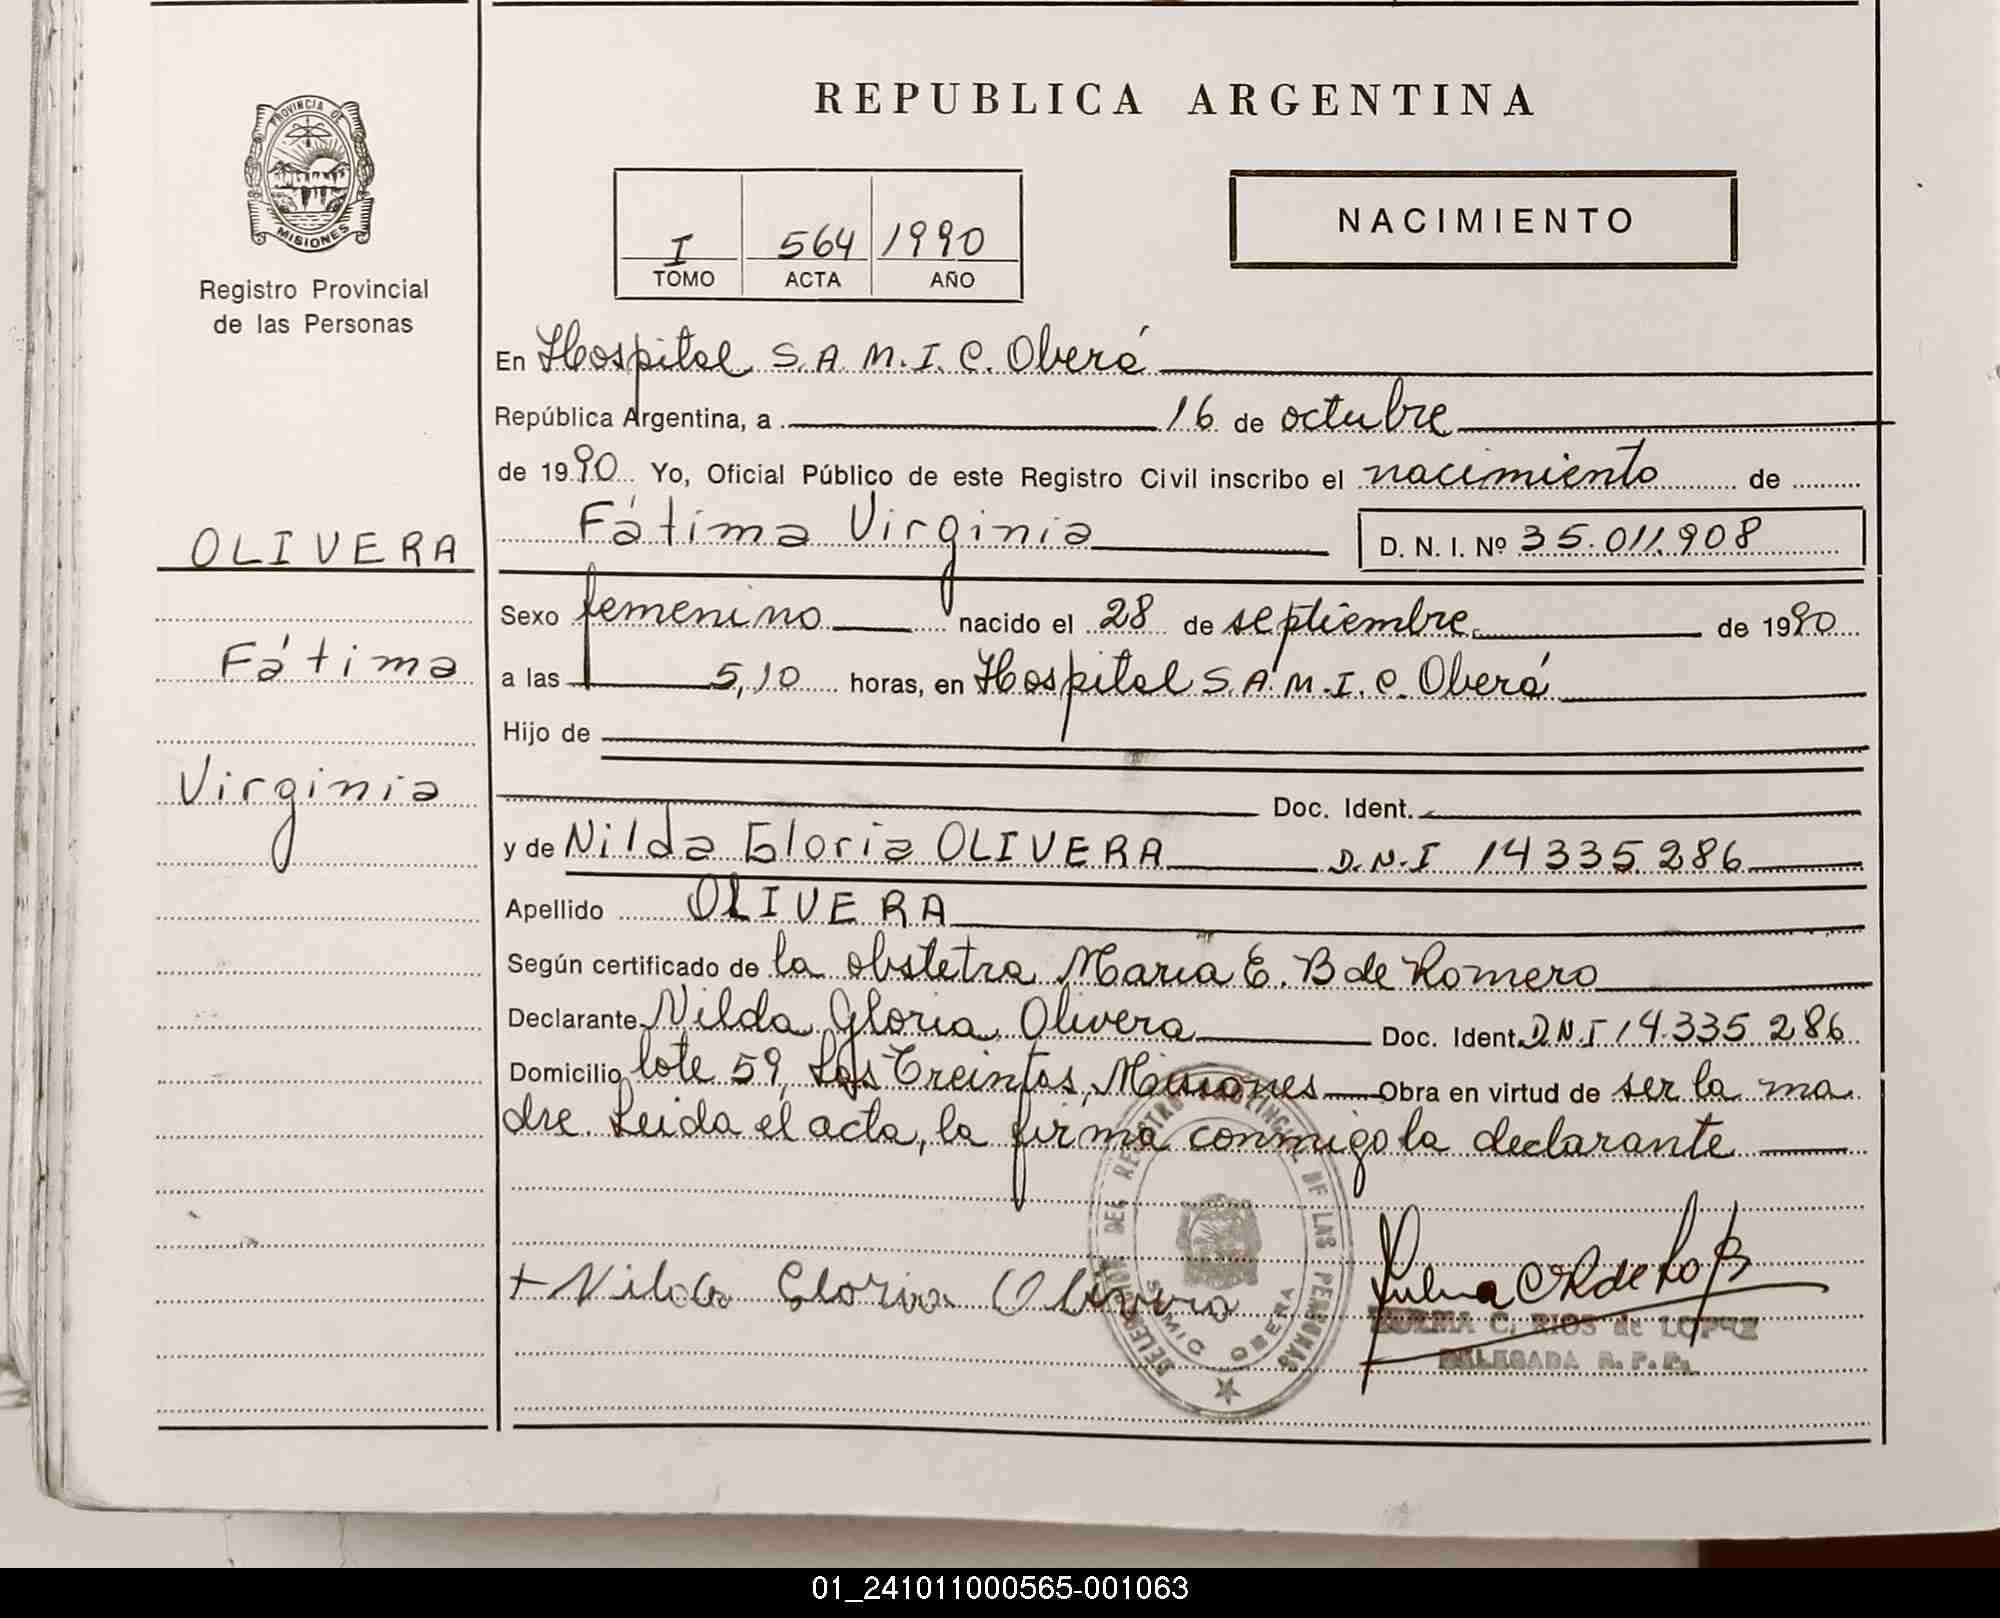 PROVINCIA DE
MISIONES
Registro Provincial
de las Personas
OLIVERA
Fátima
Virginia
REPUBLICA ARGENTINA
I 564 1990
TOMO ACTA AÑO
NACIMIENTO
En Hospital S.A.M.I.C. Oberá
República Argentina, a 16 de octubre
de 1990 Yo, Oficial Público de este Registro Civil inscribo el nacimiento de
Fátima Virginia D. N. I. Nº 35.011.908
Sexo femenino nacido el 28 de septiembre de 1990
a las 5,10 horas, en Hospital S.A.M.I.C. Oberá
Hijo de
Doc. Ident.
y de Nilda Gloria OLIVERA D.N.I 14335286
Apellido OLIVERA
Según certificado de la obstetra Maria E. B de Romero
Declarante Nilda Gloria Olivera Doc. Ident. D.N.I 14.335 286
Domicilio lote 59, Los Treintas, Misiones Obra en virtud de ser la ma
dre. Leida el acta, la firma conmigo la declarante
+ Nilda Gloria Olivera
DELEGACION DEL REGISTRO PROVINCIAL DE LAS PERSONAS
SAMIC OBERA
NORMA C. RIOS de LOPEZ
DELEGADA R. P. P.
01_241011000565-001063